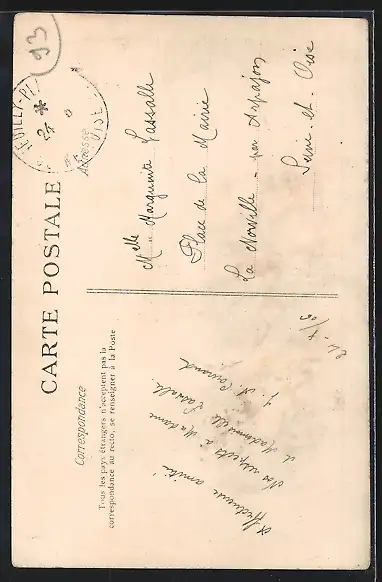 93
CARTE POSTALE
Correspondance
Tous les pays étrangers n'acceptent pas la
correspondance au recto, se renseigner à la Poste
Adresse
OISE
Melle Marguerite Lassalle
Place de la Mairie
La Norville - par Arpajon
Seine-et-Oise
Affectueuse amitié
Nos respects à Madame
et Mademoiselle Lassalle.